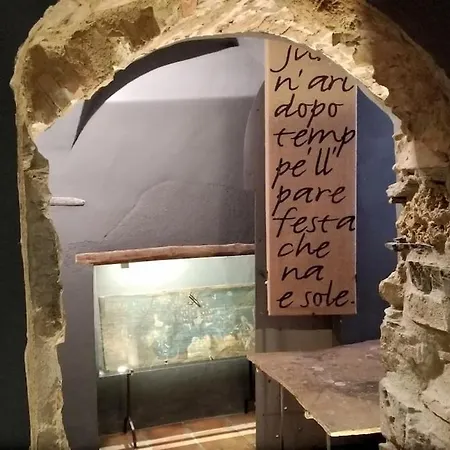 n'ari
dopo
temp
pe'll'
pare
festa
che
na
e sole.